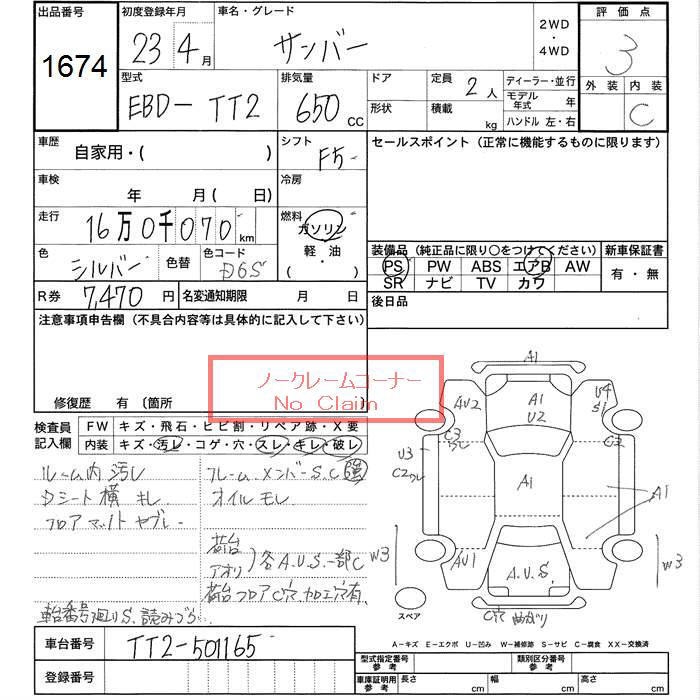 出品番号 初度登録年月 車名・グレード 2WD・4WD 評価点
1674 23 4月 サンバー 3
型式 排気量 ドア 定員 2人 ディーラー・並行 外装 内装
EBD-TT2 650 CC 形状 積載 kg モデル年式 年 C
ハンドル 左・右
車歴 自家用・( ) シフト F5 セールスポイント(正常に機能するものに限ります)
車検 年 月( 日) 冷房
走行 16万0千070km 燃料 ガソリン
軽・油
( ・ )
装備品(純正品に限り○をつけてください) 新車保証書
色 シルバー 色替 色コード D6S PS PW ABS エアB AW 有・無
SR ナビ TV カワ
R券 7,470円 名変通知期限 月 日 後日品
注意事項申告欄(不具合内容等は具体的に記入して下さい)
ノークレームコーナー
No Claim
修復歴 有 〔箇所
検査員記入欄 FW キズ・飛石・ヒビ割・リペア跡・X要
内装 キズ・汚レ・コゲ・穴・スレ・キレ・破レ
ルーム内 汚レ フレーム メンバーS.C
Dシート横 キレ オイル モレ
フロアマット ヤブレ
荷台
アオリ 各A.U.S.一部C
荷台フロアC穴 加工穴有
車台番号廻りS、読みづらい
A1
AU2 A1 U2 U4 S1
C3 ワレ C3
U3
C2ワレ
A1 A1
W3 AU1 A.U.S. W3
C穴 曲がり
スペア
A-キズ E-エクボ U-凹み W-補修跡 S-サビ C-腐食 XX-交換済
車台番号 TT2-501165
登録番号
型式指定番号 参考 類別区分番号 参考
車庫証明用 参考 長さ cm 幅 cm 高さ cm